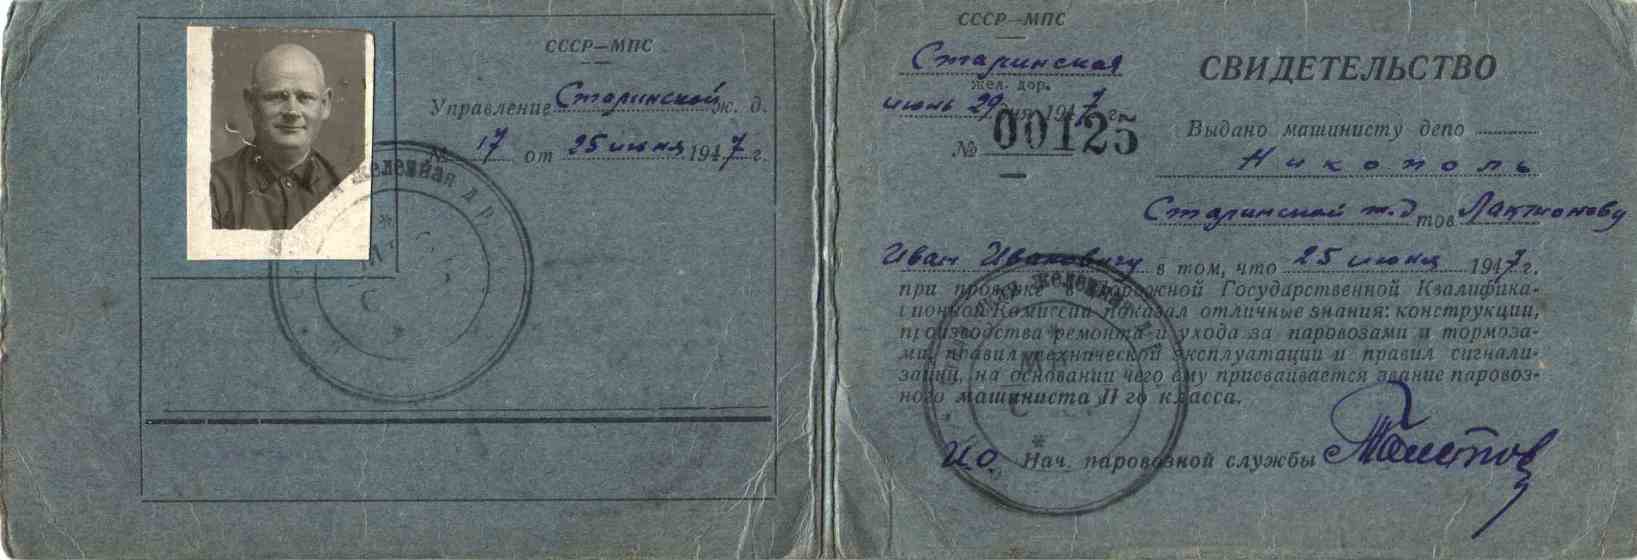 СССР—МПС
Управление Сталинской ж. д.
№ 17 от 25 июня 1947 г.
железная
СССР—МПС
Сталинская
жел. дор.
июнь 29 дня 1947 г.
№ 00125
СВИДЕТЕЛЬСТВО
Выдано машинисту депо
Никополь
Сталинской ж.д тов Лактионову
Иван Ивановичу в том, что 25 июня 1947 г.
при проверке Дорожной Государственной Квалифика-
ционной Комиссии показал отличные знания: конструкции,
производства ремонта и ухода за паровозами и тормоза-
ми, правил технической эксплуатации и правил сигнали-
зации, на основании чего ему присваивается звание паровоз-
ного машиниста II го класса.
ИО Нач. паровозной службы